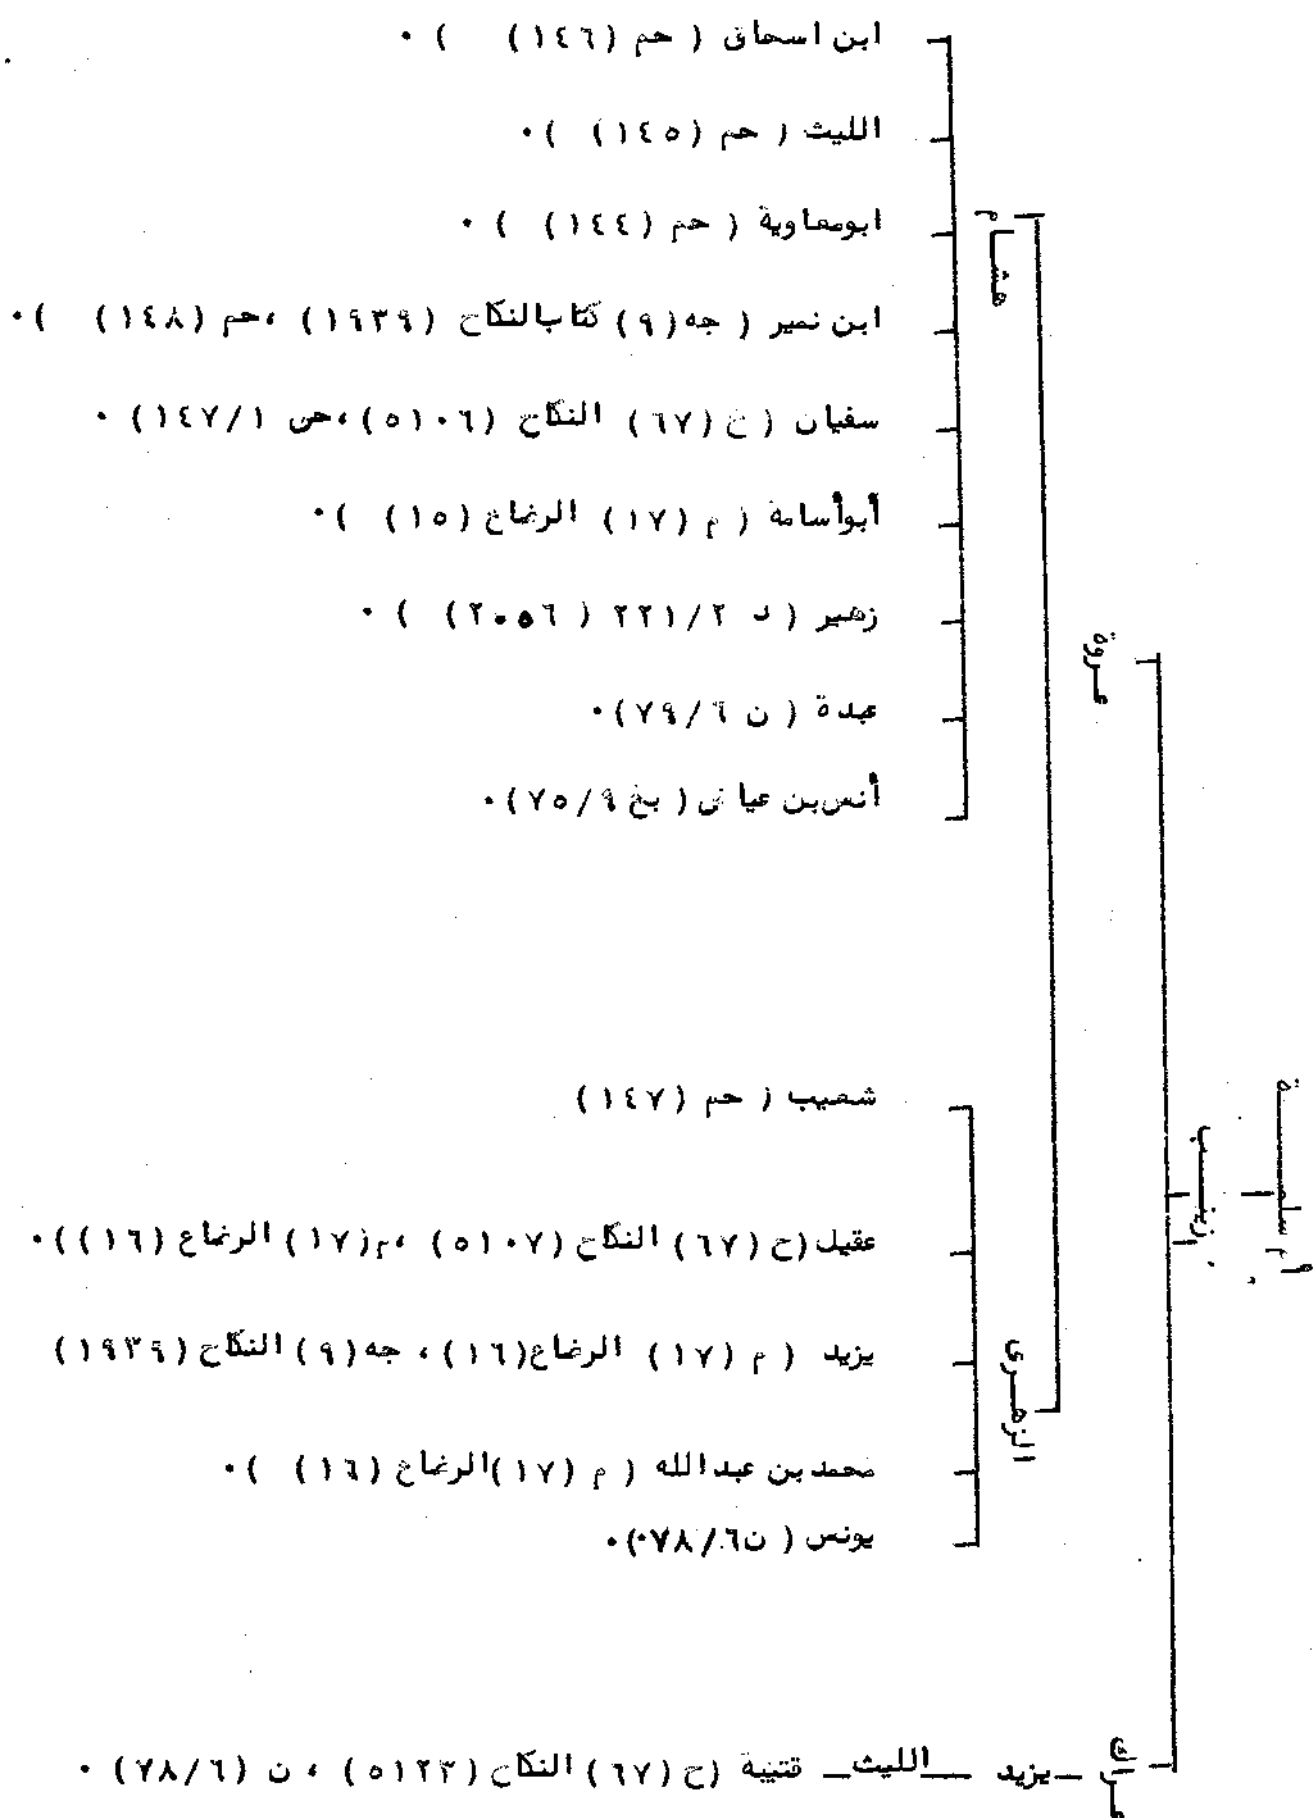 أم سلمــــة
زينــب
عــروة
هشــام
ابن اسحاق ( حم (١٤٦) ) ٠
الليث ( حم (١٤٥) ) ٠
ابومعاوية ( حم (١٤٤) ) ٠
ابن نمير ( جه (٩) كتاب النكاح (١٩٣٩) ،حم (١٤٨) ) ٠
سفيان ( خ (٦٧) النكاح (٥١٠٦) ،حى ١٤٧/١ ) ٠
أبوأسامة ( م (١٧) الرضاع (١٥) ) ٠
زهير ( د ٢٢١/٢ (٢٠٥٦) ) ٠
عبدة ( ن ٧٩/٦ ) ٠
أنس بن عياض ( بغ ٧٥/٩ ) ٠
الزهــرى
شعيب ( حم (١٤٧)
عقيل (خ (٦٧) النكاح (٥١٠٧) ،م (١٧) الرضاع (١٦) ) ٠
يزيد ( م (١٧) الرضاع (١٦) ، جه (٩) النكاح (١٩٣٩)
محمد بن عبدالله ( م (١٧) الرضاع (١٦) ) ٠
يونس ( ن ٧٨/٦ ) ٠
عــراك ــ يزيد ــ الليث ــ قتيبة (خ (٦٧) النكاح (٥١٢٣) ، ن (٧٨/٦) ٠